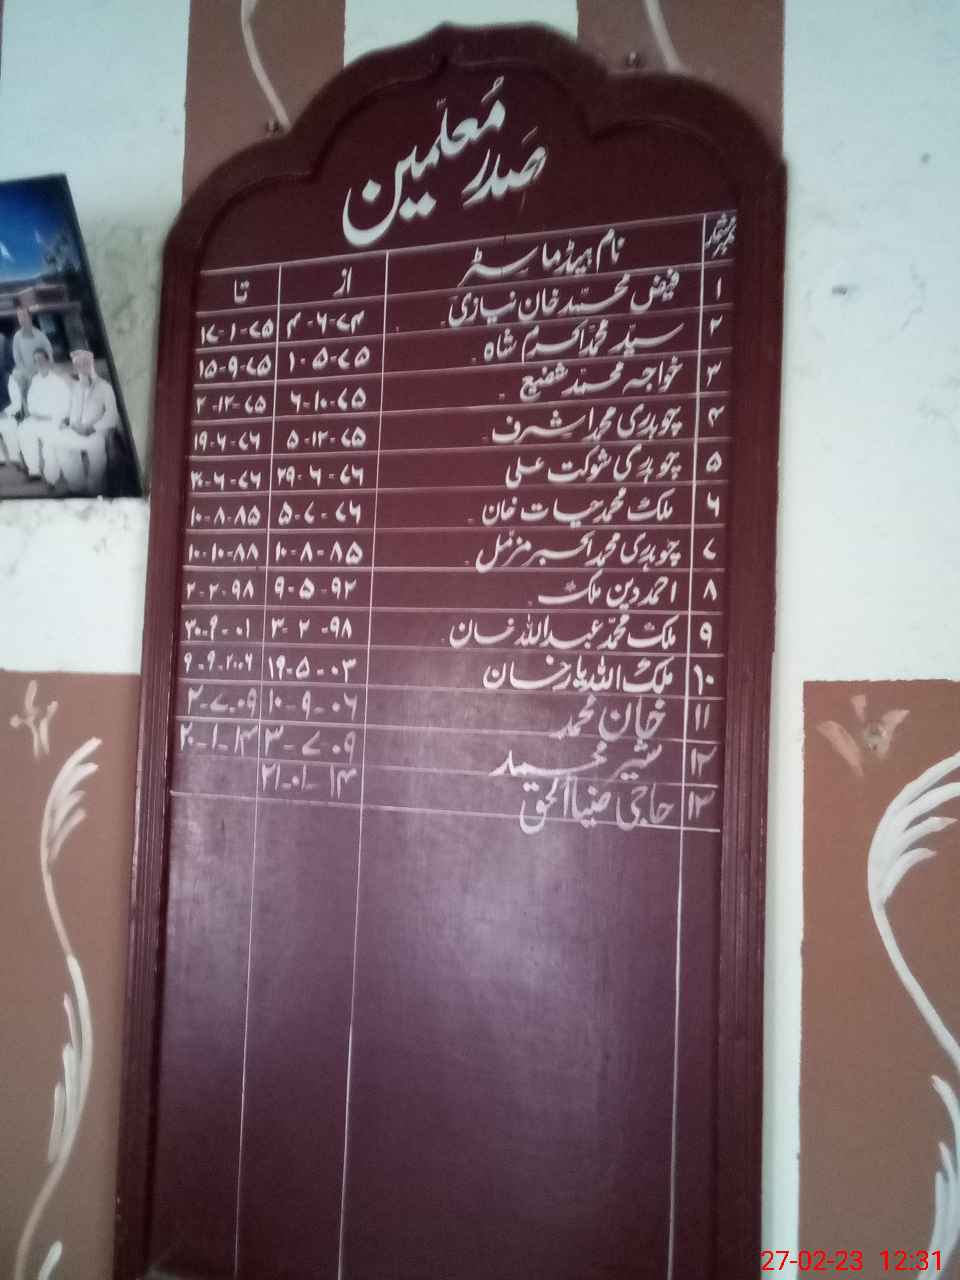 صدر معلمین
نمبر شمار نام ہیڈ ماسٹر از تا
۱ فیض محمد خان نیازی ۴-۶-۷۴ ۱۷-۱-۷۵
۲ سید محمد اکرم شاہ ۱-۵-۷۵ ۱۵-۹-۷۵
۳ خواجہ محمد شفیع ۶-۱۰-۷۵ ۲-۱۲-۷۵
۴ چوہدری محمد اشرف ۵-۱۲-۷۵ ۱۹-۶-۷۶
۵ چوہدری شوکت علی ۲۹-۶-۷۶ ۳۰-۶-۷۶
۶ ملک محمد حیات خان ۵-۷-۷۶ ۱۰-۸-۸۵
۷ چوہدری محمد اکبر مزمل ۱۰-۸-۸۵ ۱۰-۱۰-۸۸
۸ احمد دین ملک ۹-۵-۹۲ ۲-۲-۹۸
۹ ملک محمد عبداللہ خان ۳-۲-۹۸ ۳۰-۹-۰۱
۱۰ ملک اللہ یار خان ۱۹-۵-۰۳ ۹-۹-۲۰۰۶
۱۱ خان محمد ۱۰-۹-۰۶ ۲-۷-۰۹
۱۲ شیر محمد ۳-۷-۰۹ ۲۰-۱-۱۴
۱۳ حاجی ضیاالحق ۲۱-۰۱-۱۴
27-02-23 12:31